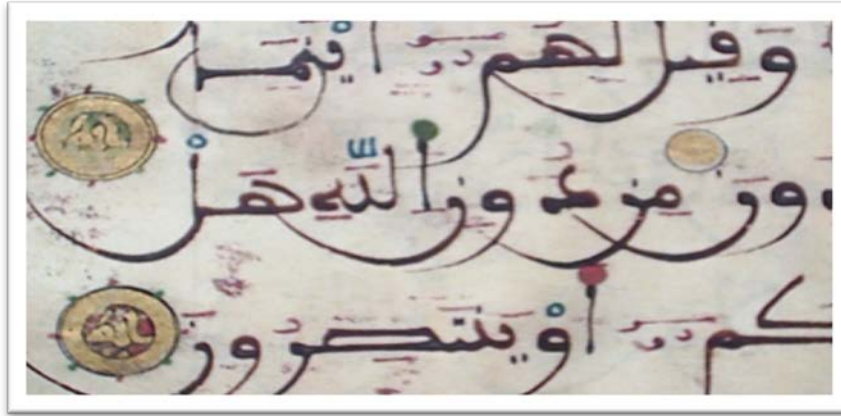 وقيل لهم أينما
ون من دون الله هل
كم أو ينتصرون